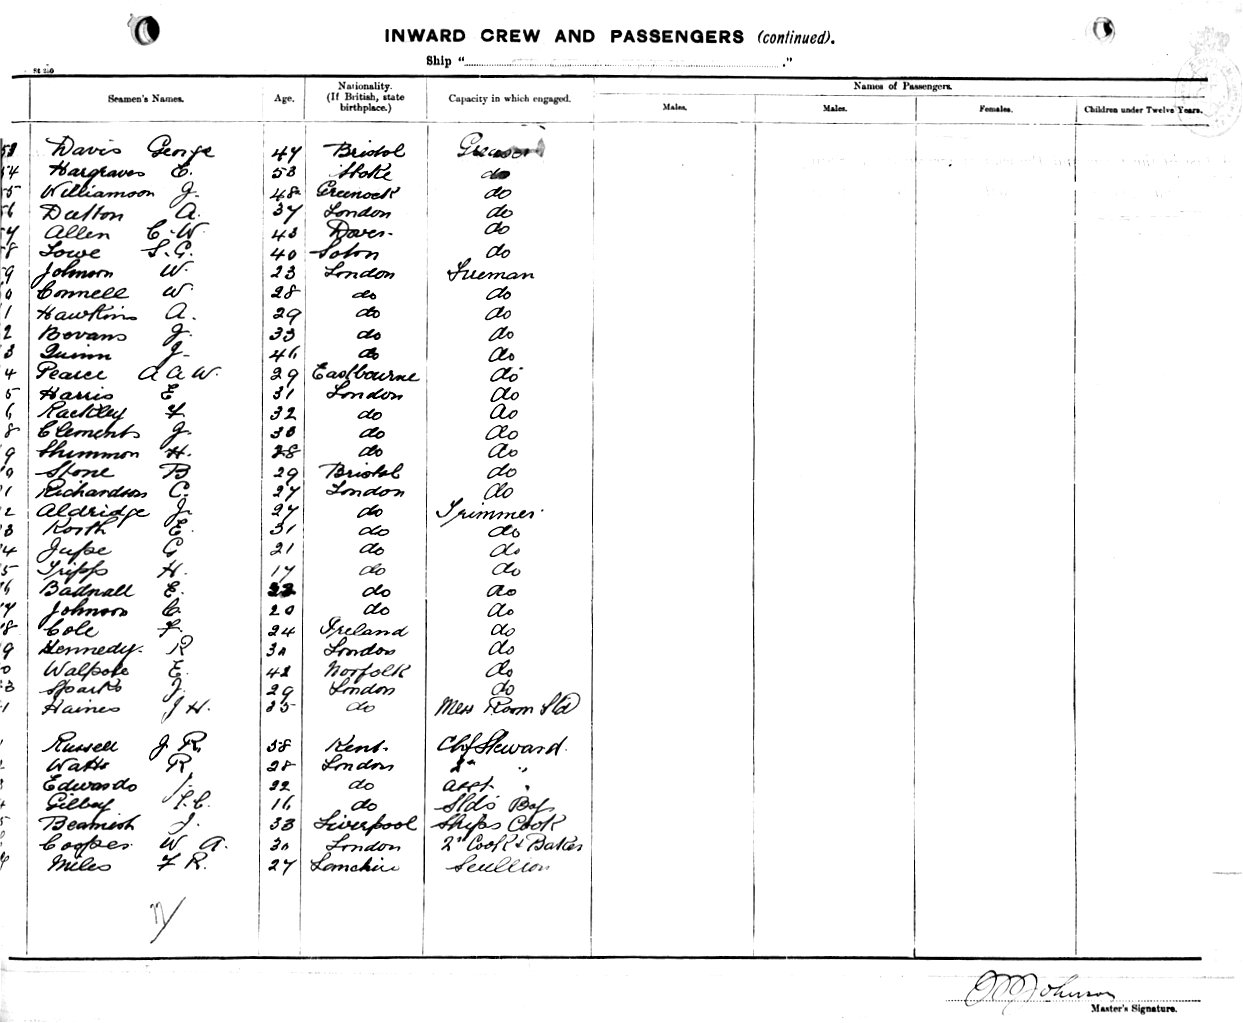 INWARD CREW AND PASSENGERS (continued).
Ship "
Seamen's Names. Age. Nationality. (If British, state birthplace.) Capacity in which engaged. Names of Passengers.
Males. Males. Females. Children under Twelve Years.
53 Davis George 47 Bristol Greaser
54 Hargraves E. 53 Stoke do
55 Williamson J. 48 Greenock do
56 Dutton A. 37 London do
57 Allen C. W. 43 Dover do
58 Lowe S. G. 40 Soton do
59 Johnson W. 23 London Fireman
0 Connell W. 28 do do
1 Hawkins A. 29 do do
2 Bovans J. 33 do do
3 Quinn J. 46 do do
4 Pearce A A W. 29 Eastbourne do
5 Harris E 31 London do
6 Rackley F. 32 do do
8 Clements J. 30 do do
9 Shimmon H. 28 do do
0 Stone B 29 Bristol do
1 Richardson C. 27 London do
2 Aldridge J. 27 do Trimmer
3 Korth E. 31 do do
4 Jupe G 21 do do
5 Tripp H. 17 do do
6 Badnall E. 22 do do
7 Johnson C. 20 do do
8 Cole F. 24 Ireland do
9 Kennedy R 30 London do
0 Walpole E. 42 Norfolk do
33 Sparks J. 29 London do
1 Haines J H. 35 do Mess Room Std
Russell J R. 38 Kent. Chf Steward
2 Watts R. 28 London 2nd "
3 Edwards 22 do asst "
4 Gilbey 16 do Stds Boy
5 Beamish J. 33 Liverpool Ships Cook
Cooper W A. 30 London 2nd Cook & Baker
7 Miles F R. 27 Scullion
77/
Johnson
Master's Signature.